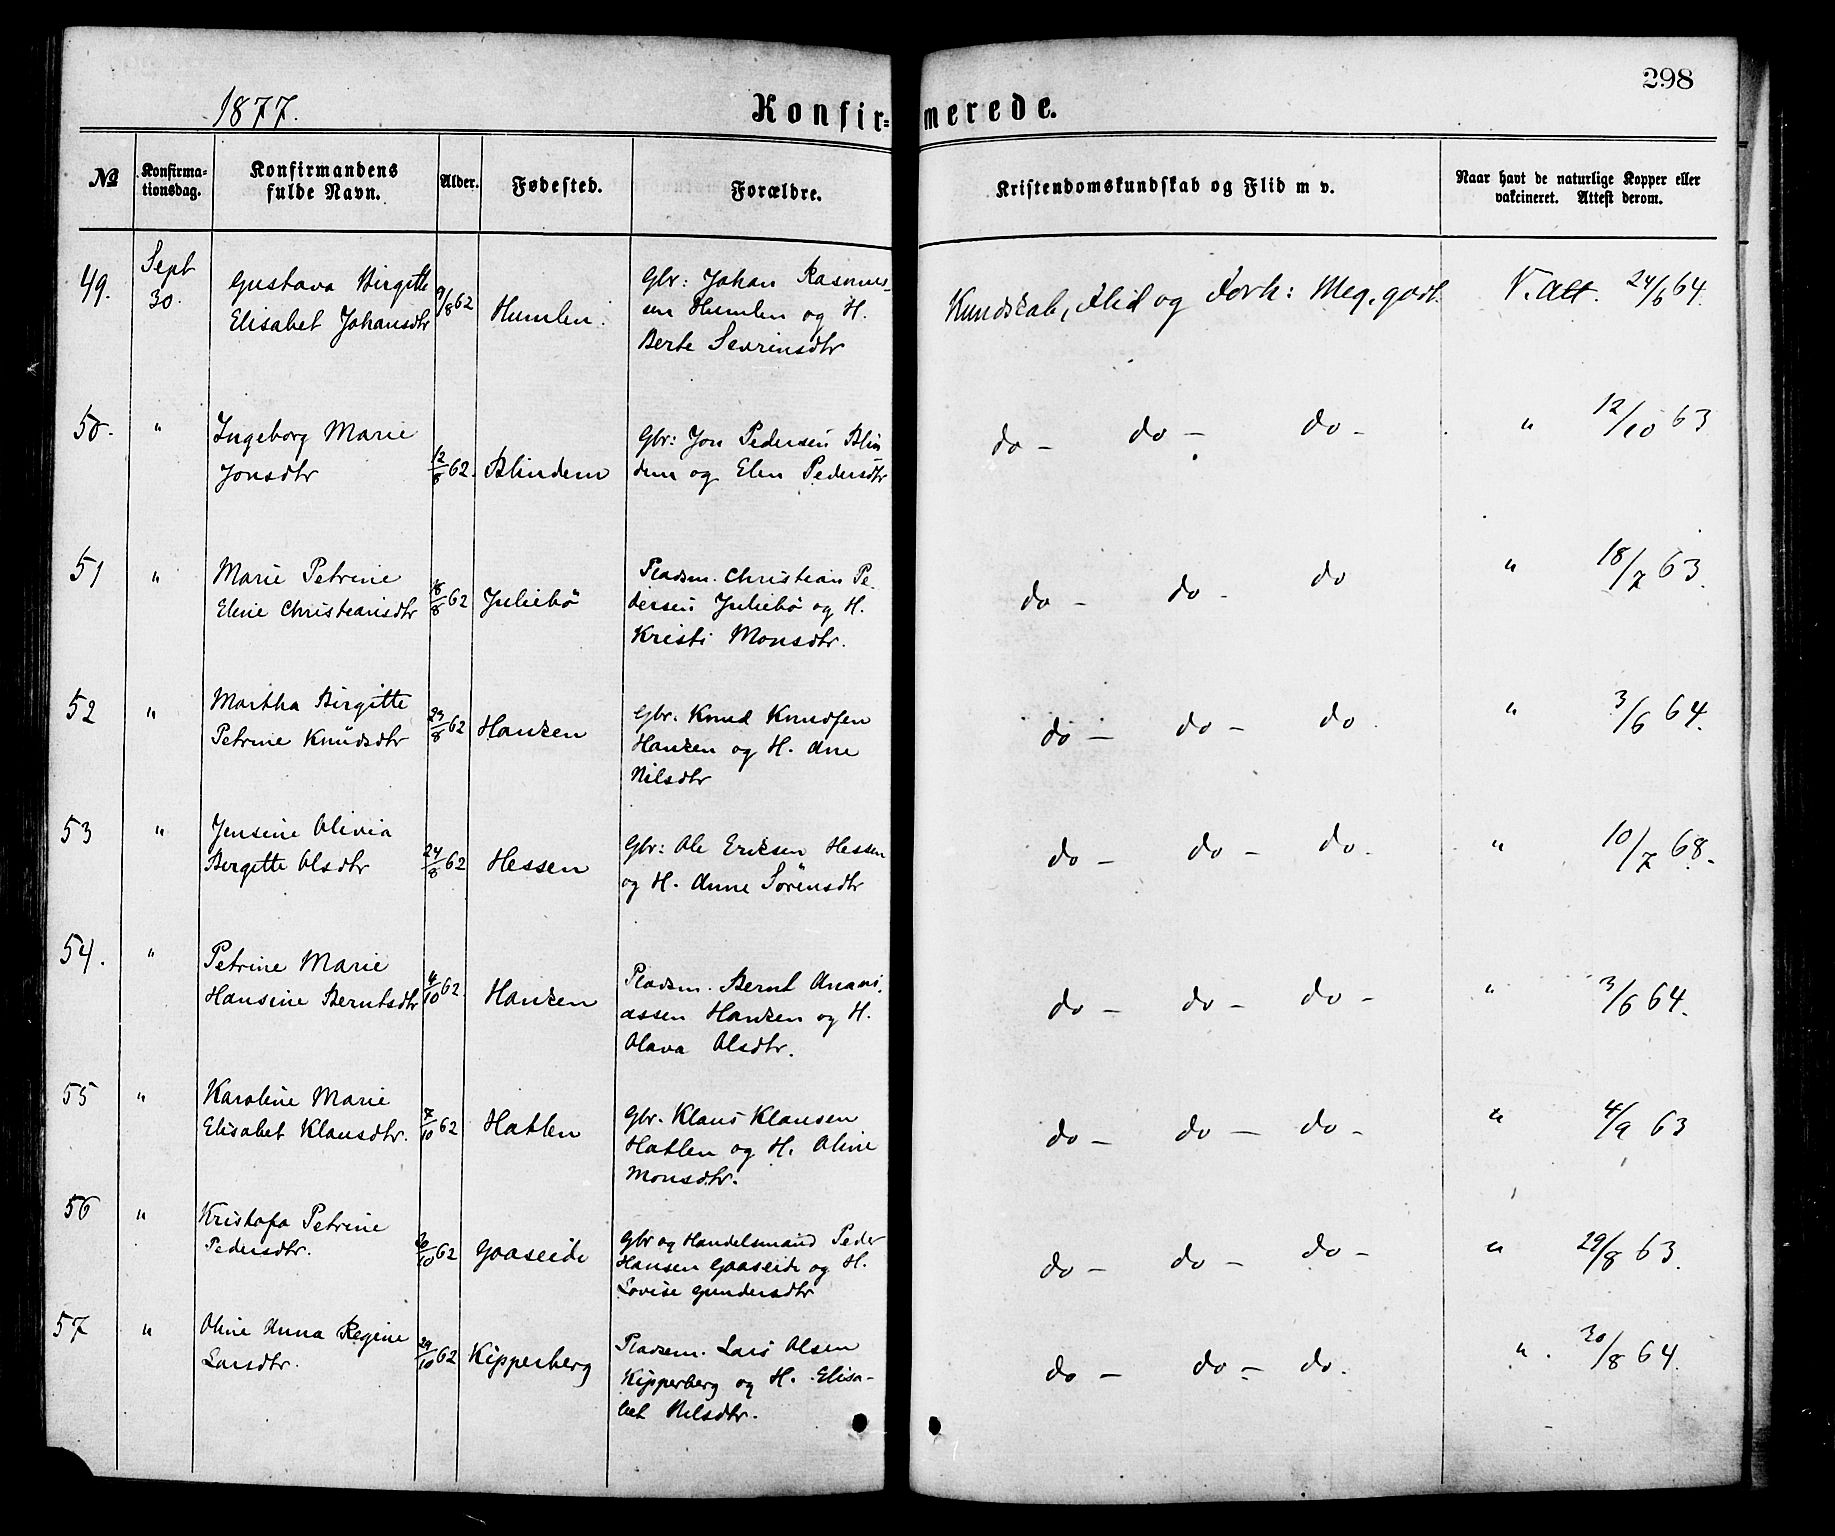 298
1877.
Konfir= merede.
No
Konfirma-
tionsdag.
Konfirmandens
fulde Navn.
Alder.
Fødested.
Forældre.
Kristendomskundskab og Flid m v.
Naar havt de naturlige Kopper eller
vakcineret. Attest derom.
49.
Sept
30.
Gustava Birgitte
Elisabet Johansdtr
9/8 62
Humlen.
Gbr: Johan Rasmus-
sen Humlen og H.
Berte Sevrinsdtr
Kundskab, Flid og Forh: Meg. godt.
V. att. 24/6 64.
50. "
Ingeborg Marie
Jonsdtr
12/8 62.
Blindem
Gbr: Jon Pedersen Blin
dem og Elen Pedersdtr
do - do - do -
" 12/10 63
51 "
Marie Petrine
Eline Christiansdtr
18/8 62
Juliebö
Pladsm. Christian Pe-
dersen Juliebö og H.
Kristi Monsdtr.
do - do - do
" 18/7 63.
52 "
Martha Birgitte
Petrine Knudsdtr
29/8 62
Hanken
Gbr. Knud Knudsen
Hanken og H. Ane
Nilsdtr
do - do - do.
" 3/6 64.
53 "
Jensine Olivia
Bergitte Olsdtr
24/8 62
Hessen
Gbr: Ole Eriksen Hessen
og H. Anne Sörensdtr
do - do - do.
" 10/7 68.
54. "
Petrine Marie
Hansine Berntsdtr
4/10 62.
Hanken
Pladsm. Bernt Anani-
assen Hanken og H.
Olava Olsdtr.
do - do - do -
" 3/6 64.
55 "
Karoline Marie
Elisabet Klausdtr.
7/10 62
Hatlen
Gbr. Klaus Klausen
Hatlen og H. Oline
Monsdtr.
do - do - do -
" 4/9 63
56 "
Kristofa Petrine
Pedersdtr.
30/10 62
Gaaseide
Gbr og Handelsmand Peder
Hansen Gaaseide og H.
Lovise Gundersdtr
do - do - do -
" 29/8 63.
57 "
Oline Anna Regine
Larsdtr.
29/10 62
Kipperberg
Pladsem. Lars Olsen
Kipperberg og H. Elisa-
bet Nilsdtr.
do - do - do.
" 30/8 64.